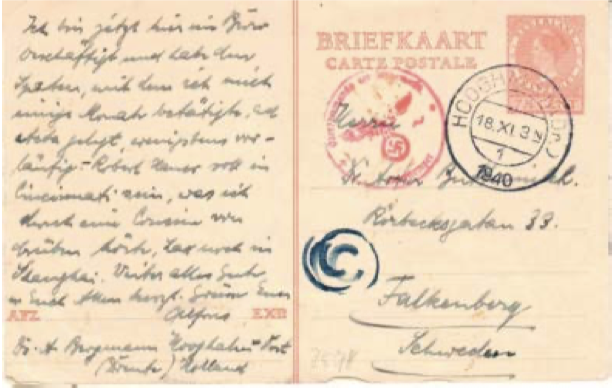 Ich bin jetzt hier im Büro
beschäftigt und habe den
Spaten, mit dem ich mich
einige Monate betätigte, ad
acta gelegt, wenigstens vor-
läufig. - Robert soll in
Cincinnati sein, was ich
durch eine Cousine von
drüben hörte, noch in
Shanghai. Weiter alles Gute
Euch Allen herzl. Grüsse Euer
Alfons
AFZ. EXP.
Dr. A. Bergmann Hooghalen-Oost
(Drente) Holland
BRIEFKAART
CARTE POSTALE
NEDERLAND
HOOGHALEN (Dr.)
18.XI.3
1
1940
Herrn
Dr.
Rörbecksgatan 33.
C
Falkenberg
Schweden